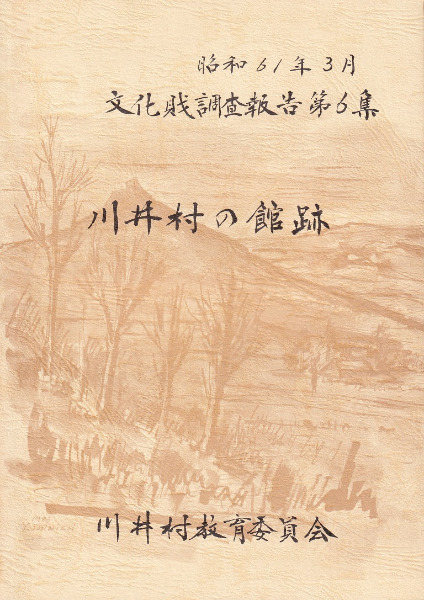 昭和61年3月
文化財調査報告第6集
川井村の館跡
川井村教育委員会